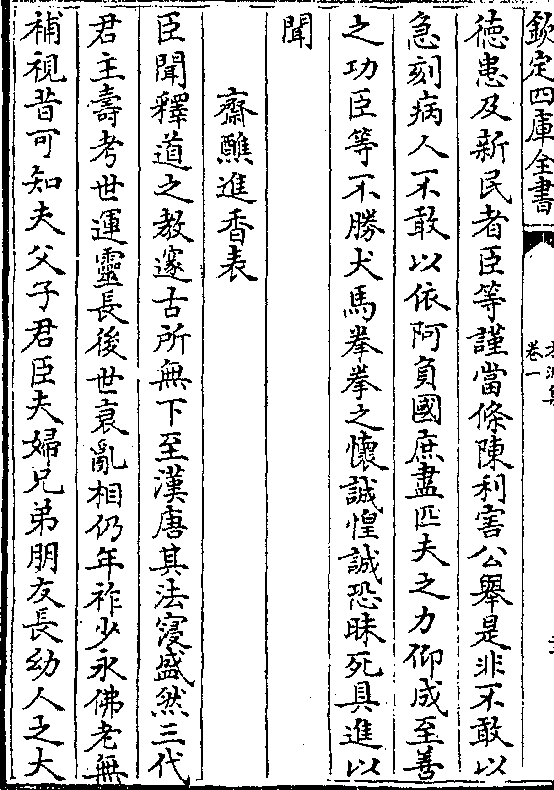 欽定四庫全書
卷一
徳患及新民者臣等謹當條陳利害公舉是非不敢以
急刻病人不敢以依阿負國庶盡匹夫之力仰成至善
之功臣等不勝犬馬拳拳之懷誠惶誠恐昧死具進以
聞
齋醮進香表
臣聞釋道之教邃古所無下至漢唐其法寖盛然三代
君主壽考世運靈長後世衰亂相仍年祚少永佛老無
補視昔可知夫父子君臣夫婦兄弟朋友長幼人之大